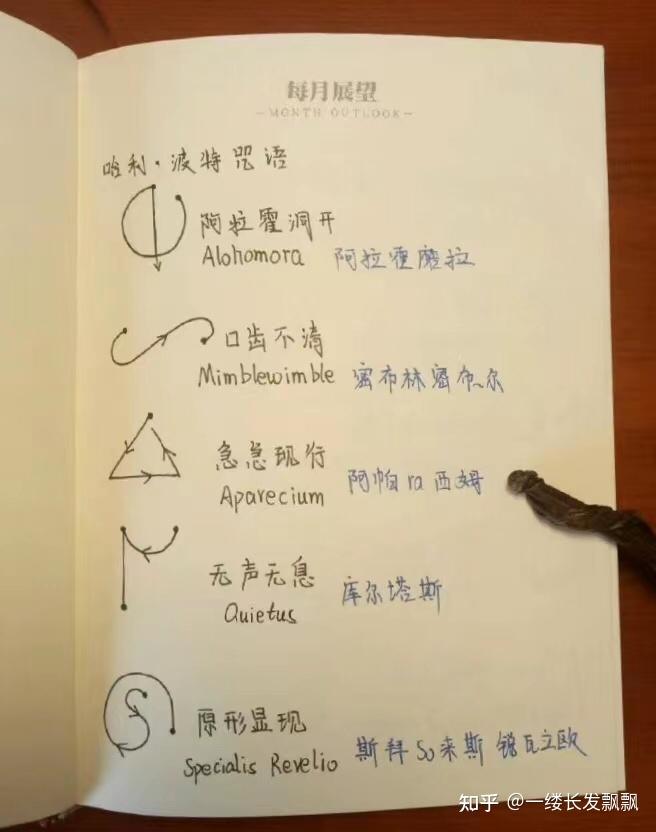 每月展望
MONTH OUTLOOK
哈利·波特咒语
阿拉霍洞开
Alohomora 阿拉霍磨拉
口齿不清
Mimblewimble 密布林密布尔
急急现行
Aparecium 阿帕ra西姆
无声无息
Quietus 库尔塔斯
原形显现
Specialis Revelio 斯拜So来斯 锐瓦立欧
知乎 @一缕长发飘飘